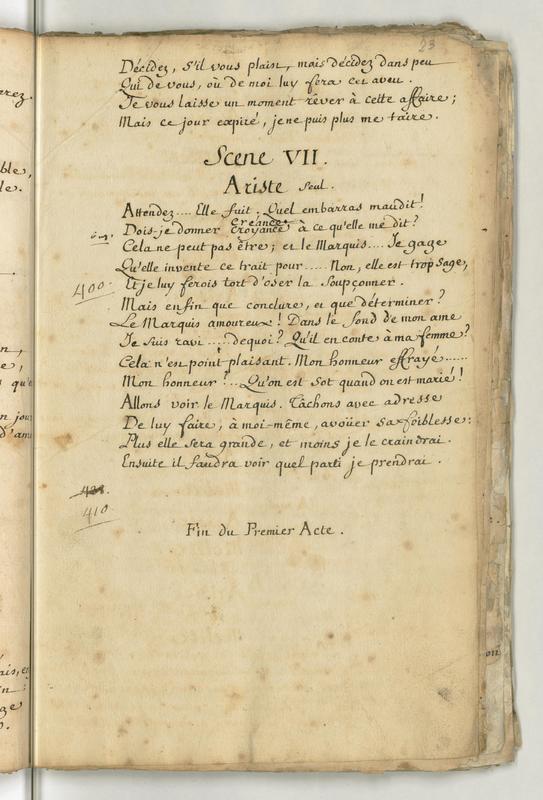 23
Décidez, s'il vous plait, mais décidez dans peu
Qui de vous, où de moi luy fera cet aveu.
Je vous laisse un moment rêver à cette affaire;
Mais ce jour expiré, je ne puis plus me taire.
Scene VII.
Ariste seul.
Attendez.... Elle fuit. Quel embarras maudit!
créance
Dois-je donner croyance à ce qu'elle me dit?
Cela ne peut pas être; et le Marquis.... Je gage
Qu'elle invente ce trait pour..... Non, elle est trop sage,
400.
Et je luy ferois tort d'oser la soupçonner.
Mais enfin que conclure, et que déterminer?
Le Marquis amoureux! Dans le fond de mon ame
Je suis ravi.... dequoi? Qu'il en conte à ma femme?
Cela n'est point plaisant. Mon honneur effrayé......
Mon honneur?... Qu'on est sot quand on est marié!
Allons voir le Marquis. Tâchons avec adresse
De luy faire, à moi-même, avoüer sa foiblesse:
Plus elle sera grande, et moins je le craindrai.
Ensuite il faudra voir quel parti je prendrai.
410
Fin du Premier Acte.